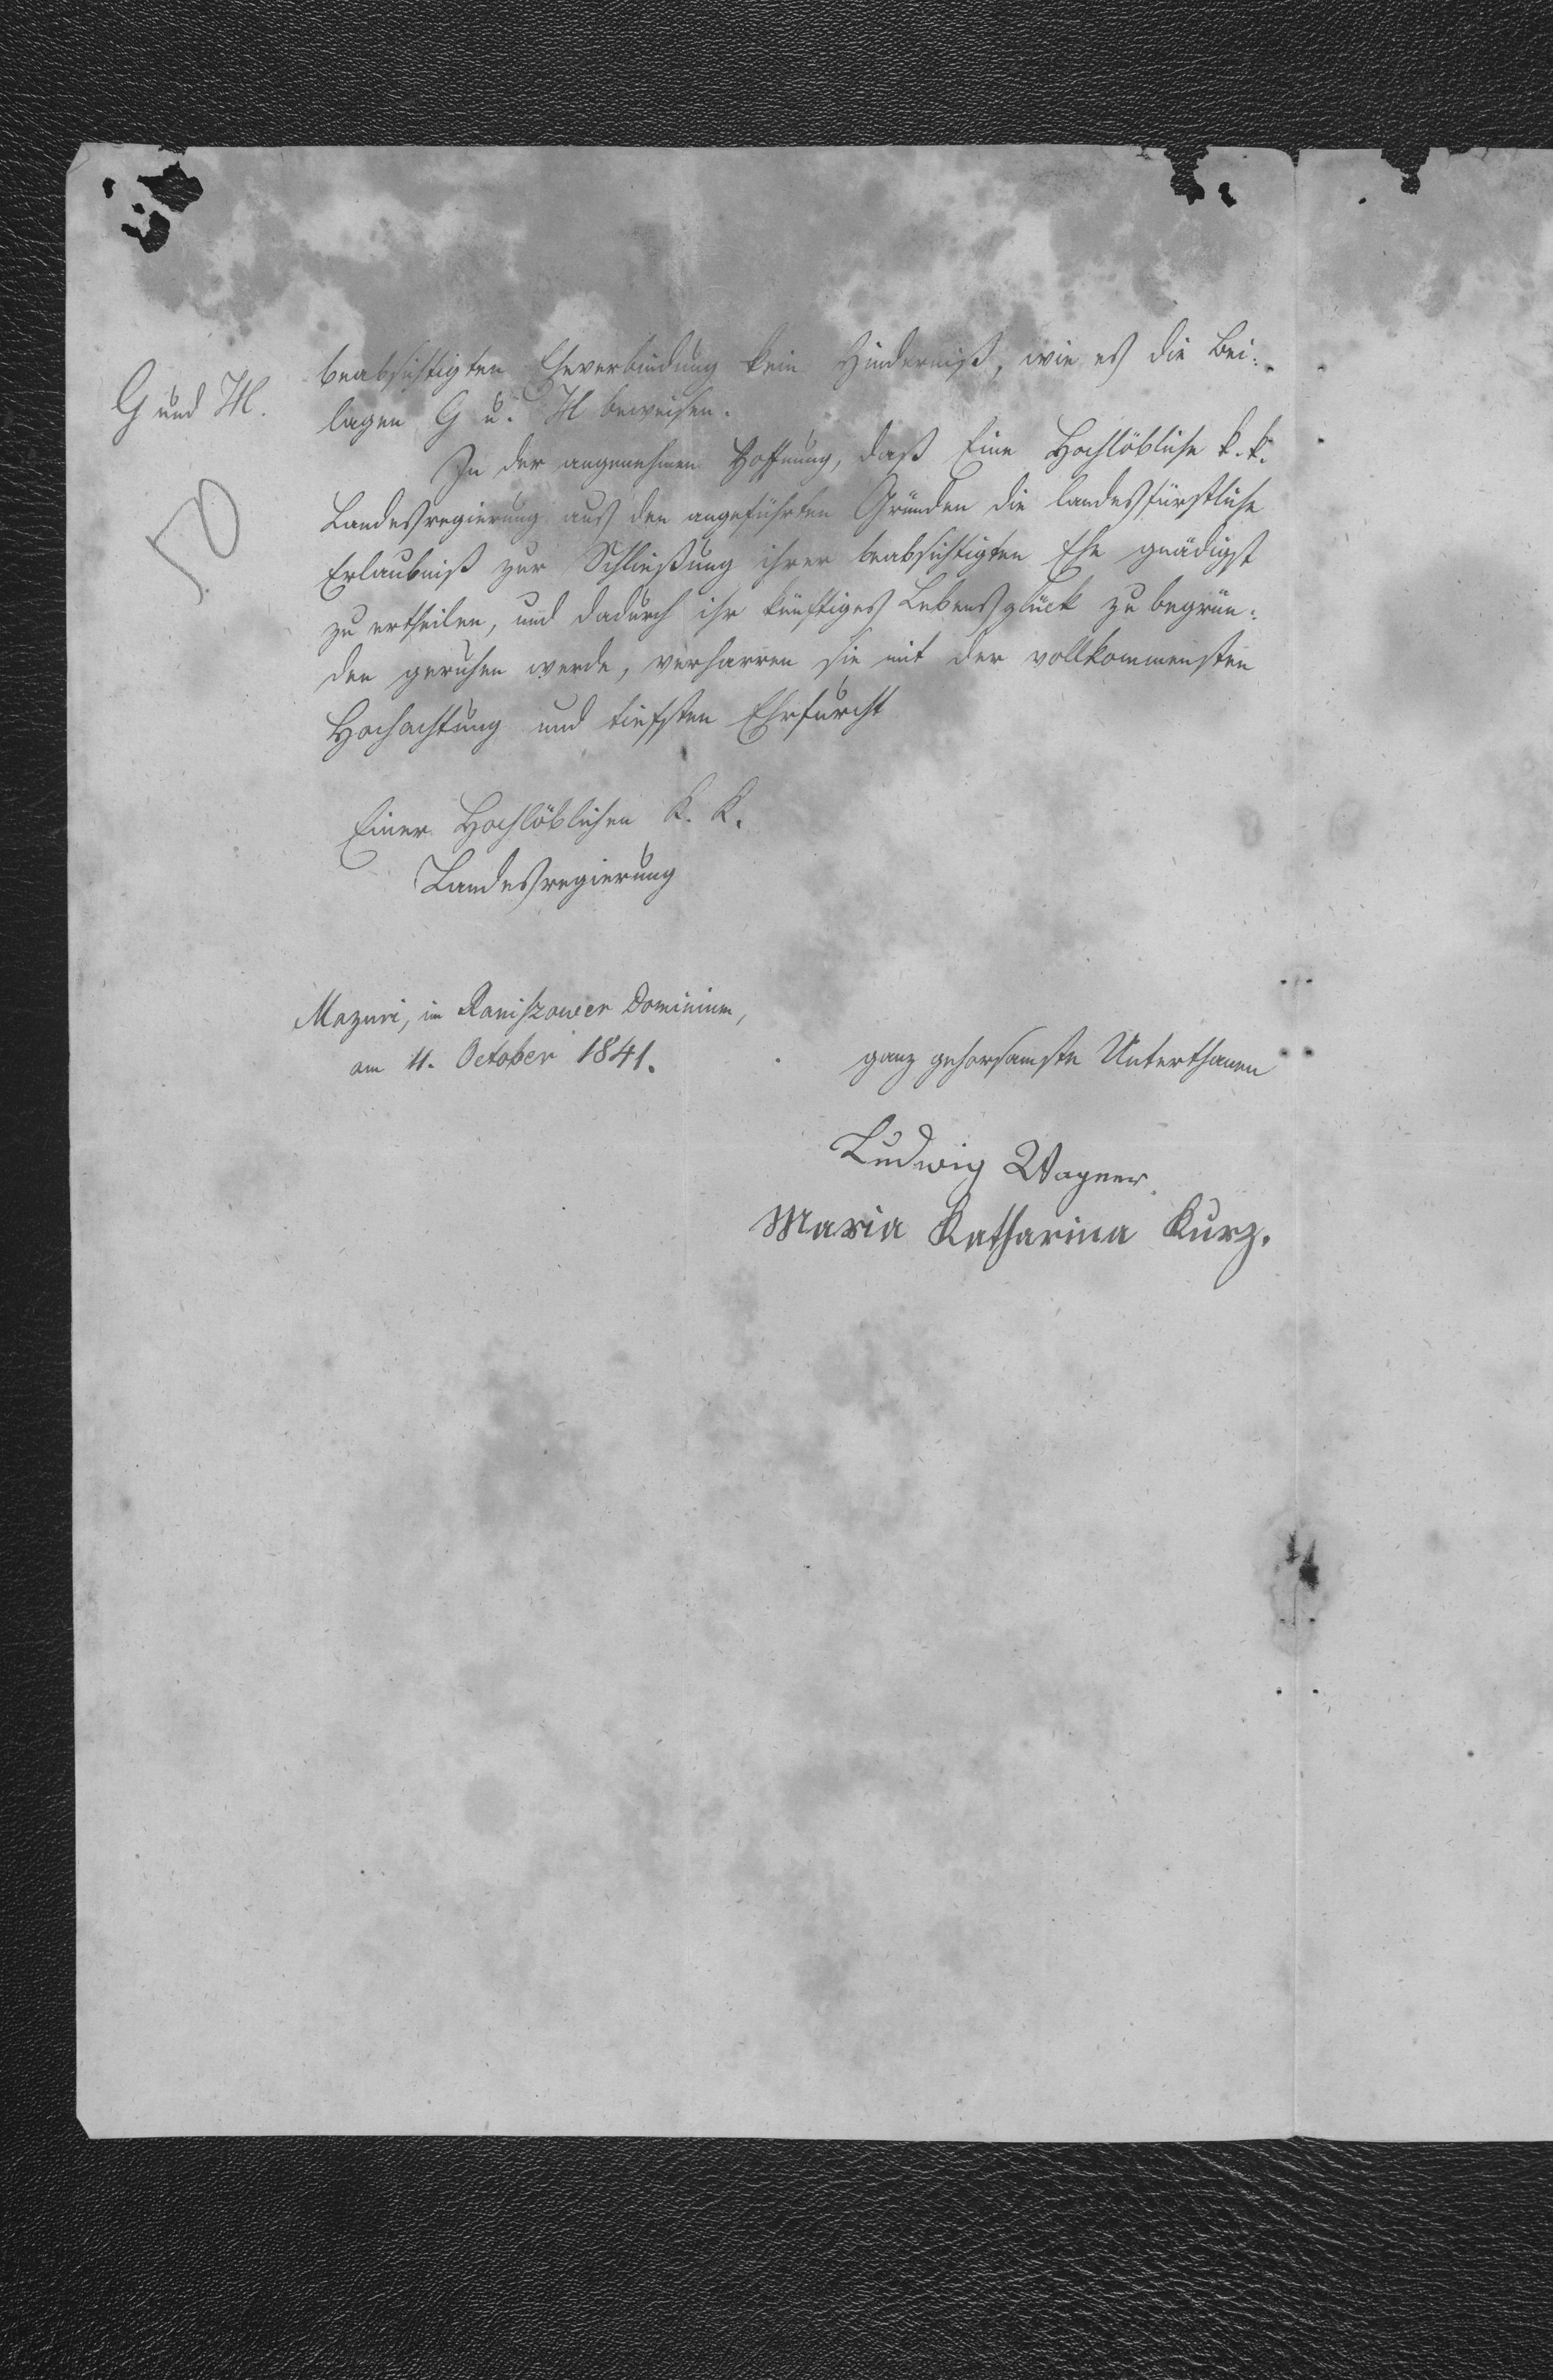 beabsichtigten Eheverbindung kein Hinderniß, wie es die Bei-
G und H.
lagen G u. H beweisen.
In der angenehmen Hoffnung, daß Eine Hochlöbliche k. k.
Landesregierung aus den angeführten Gründen die landesfürstliche
Erlaubniß zur Schließung ihrer beabsichtigten Ehe gnädigst
zu ertheilen, und dadurch ihr künftiges Lebensglück zu begrün-
den geruhen werde, verharren sie mit der vollkommensten
Hochachtung und tiefsten Ehrfurcht
Einer Hochlöblichen K. K.
Landesregierung
Mazuri, im Raniszower Dominium,
am 11. October 1841.
ganz gehorsamste Unterthanen
Ludwig Wagner.
Maria Katharina Kurz.